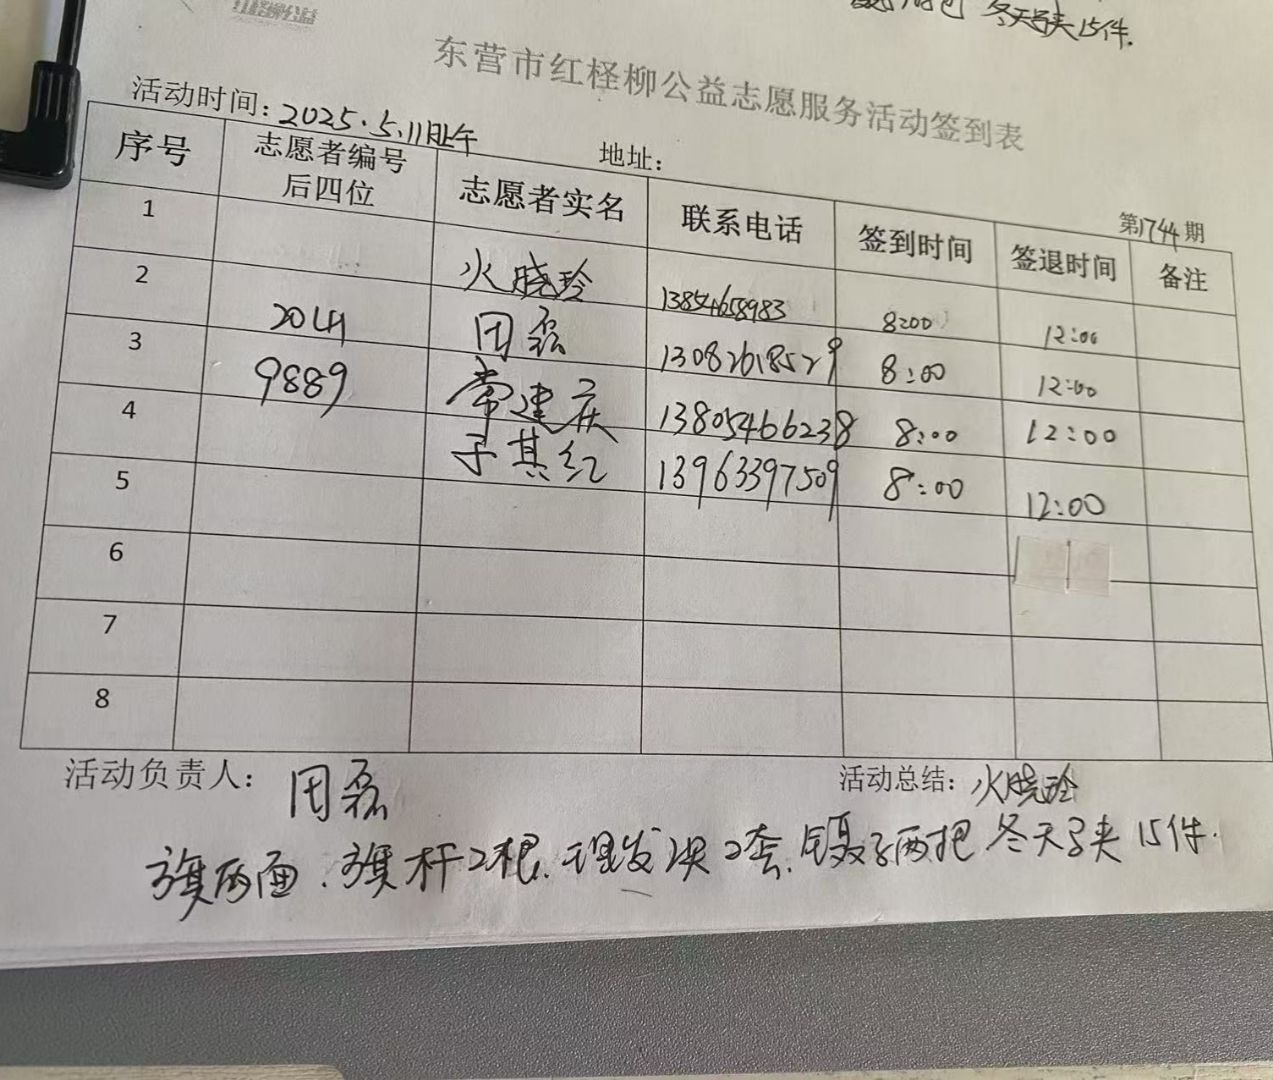 红柽柳公益
冬天马夹15件.
东营市红柽柳公益志愿服务活动签到表
活动时间: 2025.5.11日上午 地址:
第1744期
序号 志愿者编号后四位 志愿者实名 联系电话 签到时间 签退时间 备注
1 火晓玲 13854658983 8:00 12:00
2 2044 田磊 13082618529 8:00 12:00
3 9889 常建庆 13805466238 8:00 12:00
4 于其红 13963397509 8:00 12:00
5
6
7
8
活动负责人: 田磊 活动总结: 火晓玲
旗两面、旗杆2根、理发 2套、镊子两把 冬天马夹15件.